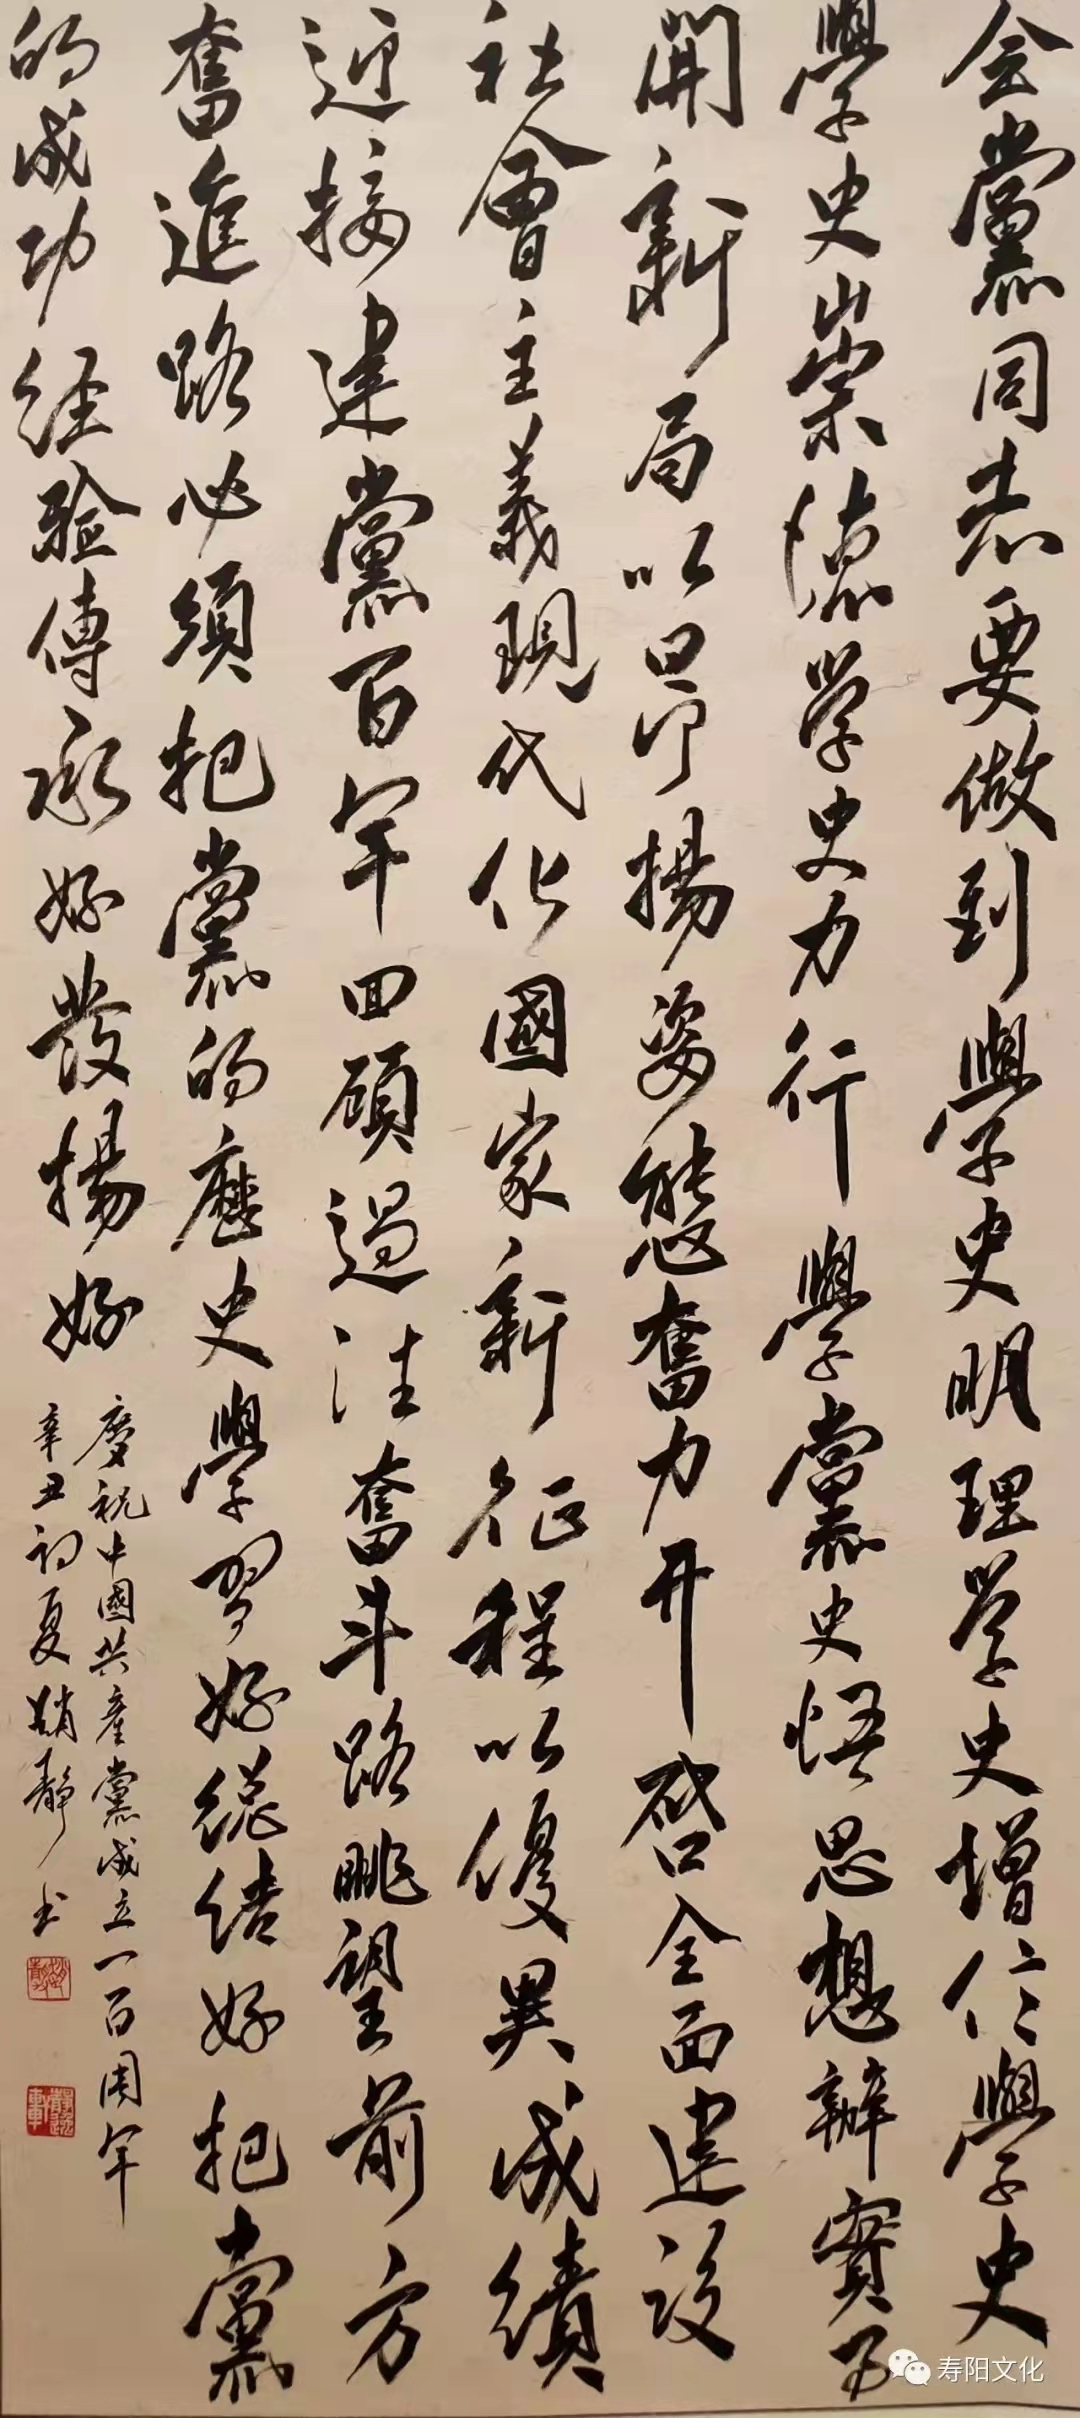 全黨同志要做到學史明理学史增信學史
學史崇德学史力行學黨史悟思想辦實事
開新局以昂揚姿態奮力开啓全面建設
社會主義現代化國家新征程以優異成績
迎接建黨百年回顧過往奮斗路眺望前方
奮進路必須把黨的歷史學習好總结好把黨
的成功经验傳承好發揚好
慶祝中國共產黨成立一百周年
辛丑初夏趙靜书
寿阳文化